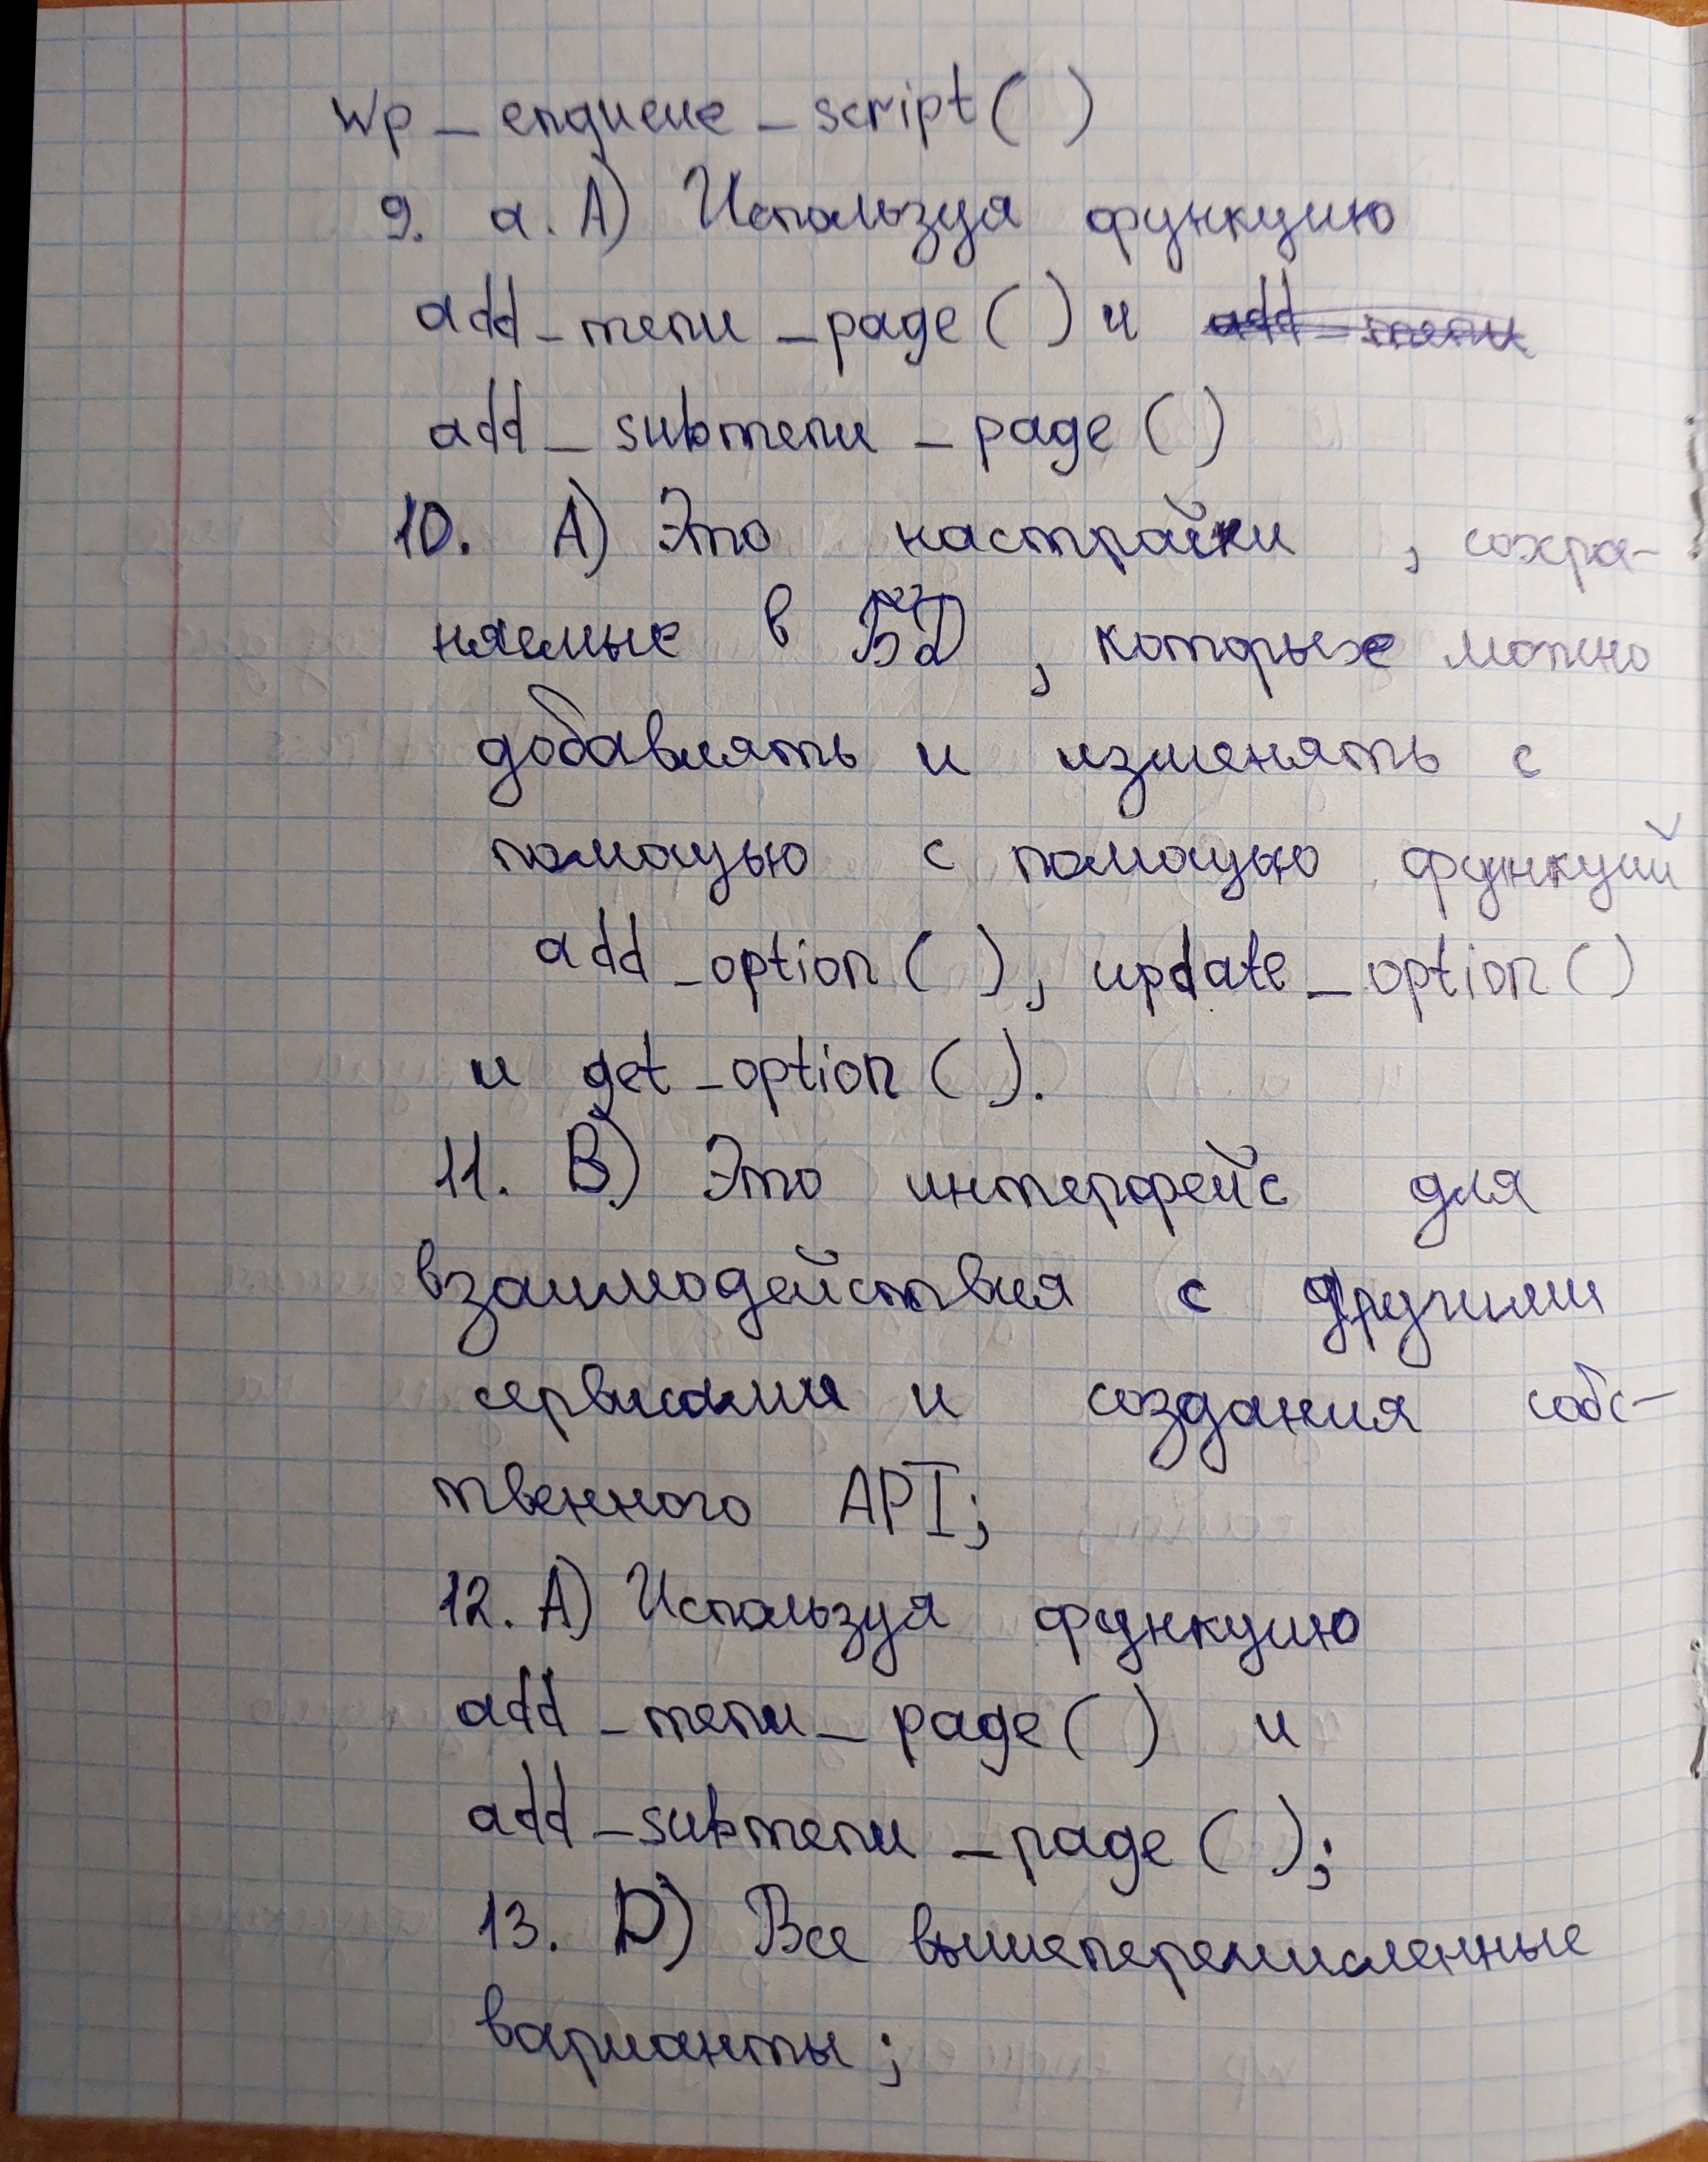 Wp_enqueue_script( )
9. а. А) Используя функцию
add_menu_page( ) и
add_submenu_page( )
10. А) Это настройки, сохра-
няемые в БД, которые можно
добавлять и изменять с
помощью с помощью функций
add_option( ), update_option( )
и get_option( ).
11. B) Это интерфейс для
взаимодействия с другими
сервисами и создания собс-
твенного API;
12. А) Используя функцию
add_menu_page( ) и
add_submenu_page( );
13. D) Все вышеперечисленные
варианты;